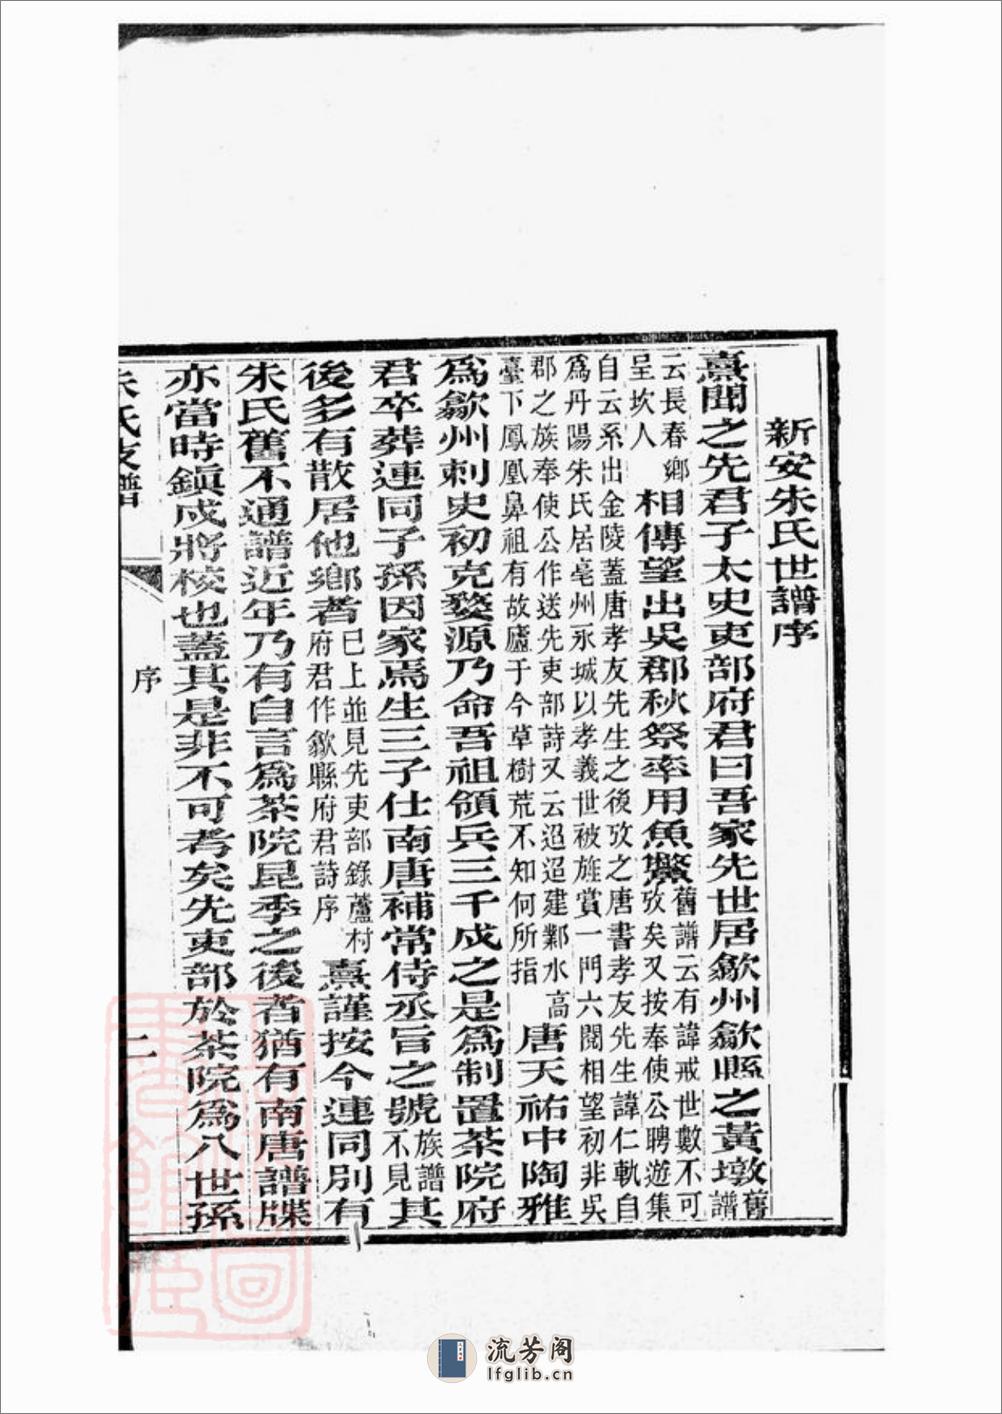 新安朱氏世譜序
熹聞之先君子太史吏部府君曰吾家先世居歙州歙縣之黃墩舊譜
云長春鄉
呈坎人
相傳望出吳郡秋祭率用魚鱉
舊譜云有諱戒世數不可
攷矣又按奉使公聘遊集
自云系出金陵蓋唐孝友先生之後攷之唐書孝友先生諱仁軌自
爲丹陽朱氏居亳州永城以孝義世被旌賞一門六闕相望初非吳
郡之族奉使公作送先吏部詩又云迢迢建鄴水高
臺下鳳凰鼻祖有故廬于今草樹荒不知何所指
唐天祐中陶雅
爲歙州刺史初克婺源乃命吾祖領兵三千戍之是爲制置茶院府
君卒葬連同子孫因家焉生三子仕南唐補常侍丞旨之號
族譜
不見
其
後多有散居他鄉者
已上並見先吏部錄蘆村
府君作歙縣府君詩序
熹謹按今連同別有
朱氏舊不通譜近年乃有自言爲茶院昆季之後者猶有南唐譜牒
亦當時鎭戍將校也蓋其是非不可考矣先吏部於茶院爲八世孫
朱氏支譜
序
二
流芳阁
lfglib.cn